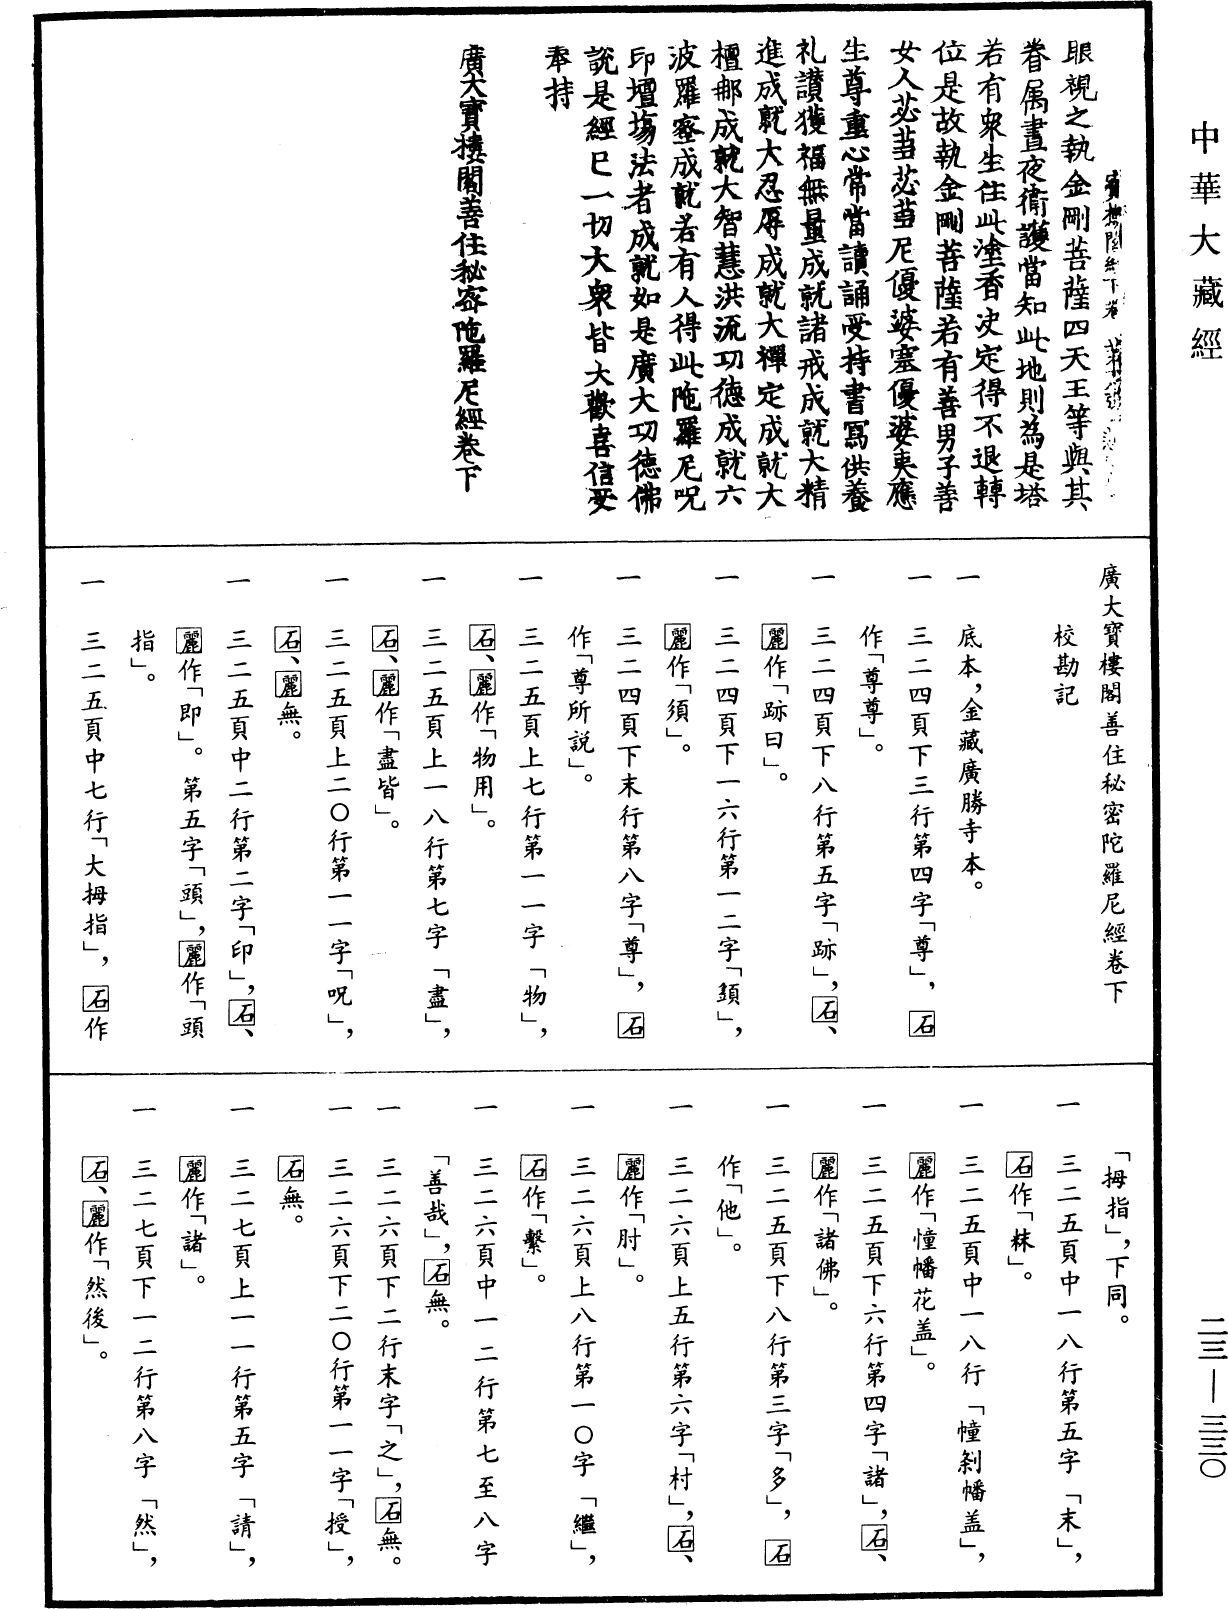 中華大藏經
眼視之執金剛菩薩四天王等與其
眷属晝夜衛護當知此地則為是塔
若有衆生住此塗香決定得不退轉
位是故執金剛菩薩若有善男子善
女人苾芻苾芻尼優婆塞優婆夷應
生尊重心常當讀誦受持書寫供養
礼讃獲福無量成就諸戒成就大精
進成就大忍辱成就大禪定成就大
檀那成就大智慧洪流功德成就六
波羅蜜成就若有人得此陁羅尼呪
印壇塲法者成就如是廣大功德佛
說是經已一切大衆皆大歡喜信受
奉持
廣大寶樓閣善住秘密陁羅尼經卷下
廣大寶樓閣善住秘密陀羅尼經卷下
校勘記
一 底本，金藏廣勝寺本。
一 三二四頁下三行第四字「尊」，石
作「尊尊」。
一 三二四頁下八行第五字「跡」，石、
麗作「跡曰」。
一 三二四頁下一六行第一二字「頦」，
麗作「須」。
一 三二四頁下末行第八字「尊」，石
作「尊所説」。
一 三二五頁上七行第一一字「物」，
石、麗作「物用」。
一 三二五頁上一八行第七字「盡」，
石、麗作「盡皆」。
一 三二五頁上二〇行第一一字「呪」，
石、麗無。
一 三二五頁中二行第二字「印」，石、
麗作「即」。第五字「頭」，麗作「頭
指」。
一 三二五頁中七行「大拇指」，石作
「拇指」，下同。
一 三二五頁中一八行第五字「末」，
石作「秣」。
一 三二五頁中一八行「幢刹幡盖」，
麗作「幢幡花盖」。
一 三二五頁下六行第四字「諸」，石、
麗作「諸佛」。
一 三二五頁下八行第三字「多」，石
作「他」。
一 三二六頁上五行第六字「村」，石、
麗作「肘」。
一 三二六頁上八行第一〇字「繼」，
石作「繫」。
一 三二六頁中一二行第七至八字
「善哉」，石無。
一 三二六頁下二行末字「之」，石無。
一 三二六頁下二〇行第一一字「授」，
石無。
一 三二七頁上一一行第五字「請」，
麗作「諸」。
一 三二七頁下一二行第八字「然」，
石、麗作「然後」。
二三—三三〇